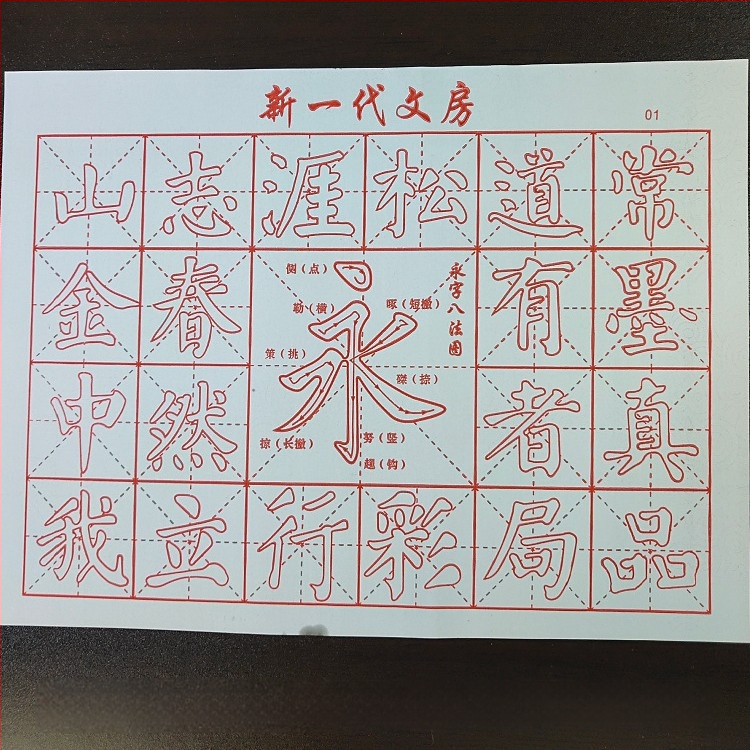 新一代文房
01
山志涯松道常
金春
中然
永字八法图
侧（点）
勒（横）
啄（短撇）
策（挑）
永
磔（捺）
掠（长撇）
努（竖）
趯（钩）
有墨
者真
我立行彩局品